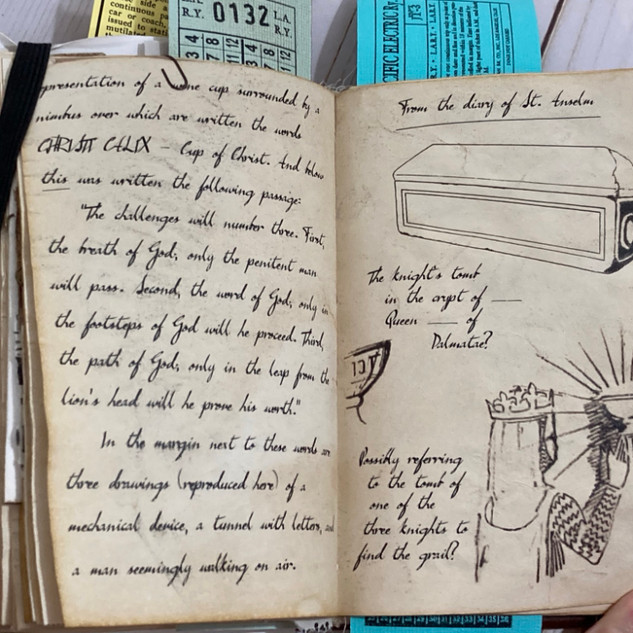 R.Y.
0132
L.A.
R.Y.
presentation of a wine cup surrounded by a
nimbus over which are written the words
CHRIST CALIX – Cup of Christ. And below
this was written the following passage:
"The challenges will number three. First,
the breath of God; only the penitent man
will pass. Second, the word of God; only in
the footsteps of God will he proceed. Third,
the path of God; only in the leap from the
lion's head will he prove his worth."
In the margin next to these words are
three drawings (reproduced here) of a
mechanical device, a tunnel with letters, and
a man seemingly walking on air.
From the diary of St. Anselm
The knight's tomb
in the crypt of ___
Queen ___ of
Dalmatae?
Possibly referring
to the tomb of
one of the
three knights to
find the grail?